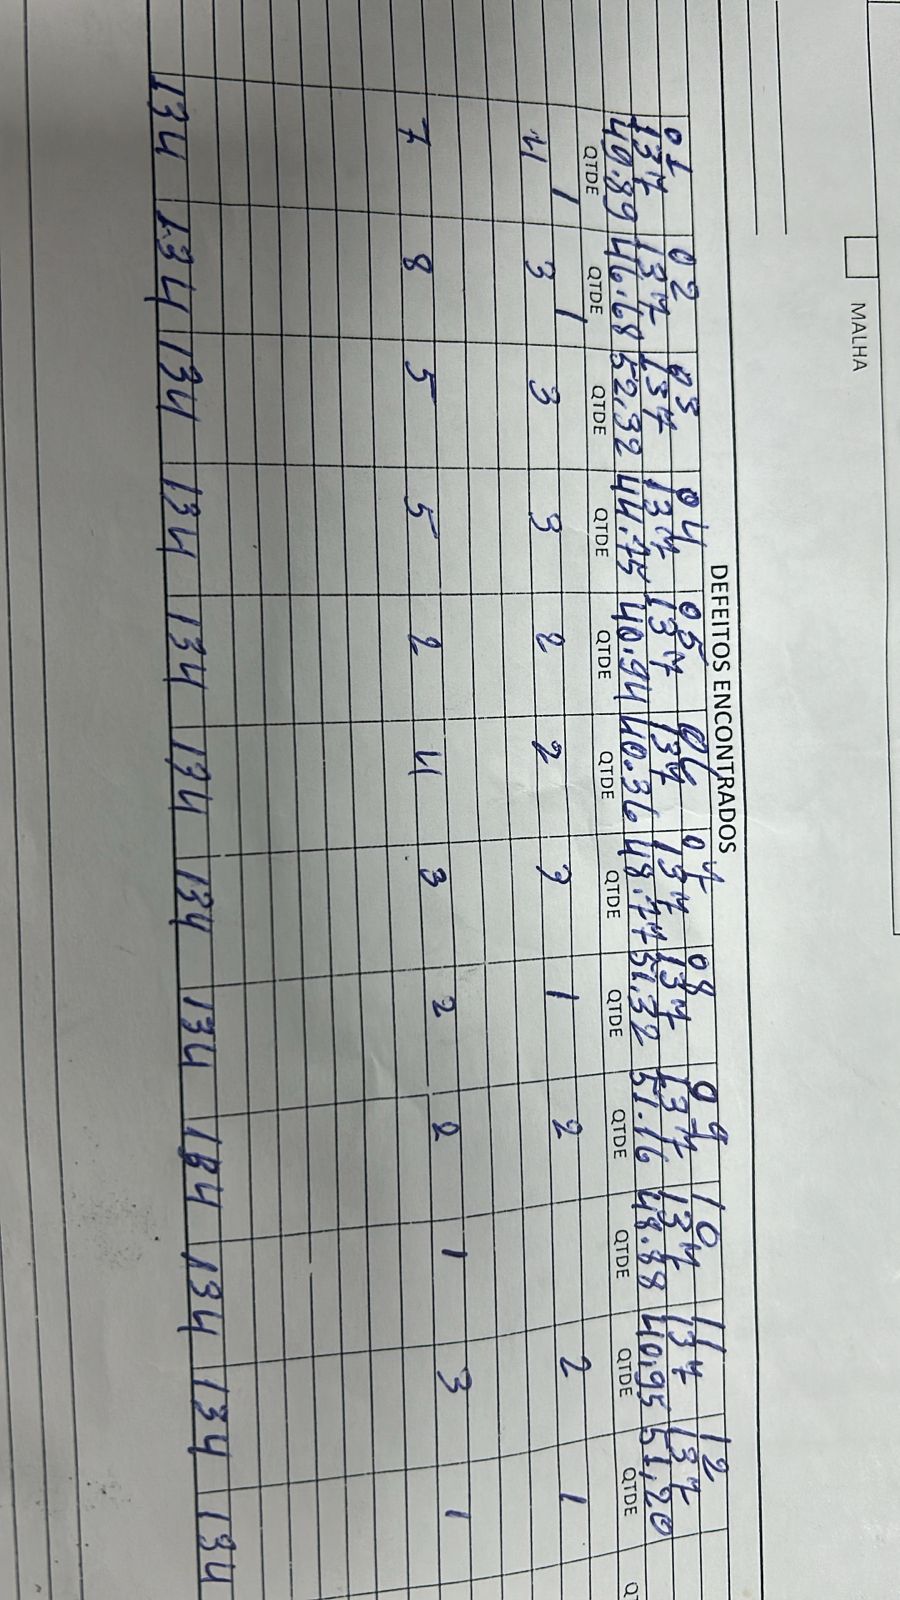 MALHA
DEFEITOS ENCONTRADOS
01 02 03 04 05 06 07 08 09 10 11 12
137 137 137 137 137 137 137 137 137 137 137 137
40.89 46.68 52,32 44.75 40.94 40.36 48.77 51.32 51.16 48.88 40,95 51,20
QTDE QTDE QTDE QTDE QTDE QTDE QTDE QTDE QTDE QTDE QTDE QTDE Q
1 1
4 3 3 3 2 2 1 2 2 1
7 8 5 5 2 4 3 2 2 1 3 1
134 134 134 134 134 134 134 134 134 134 134 134